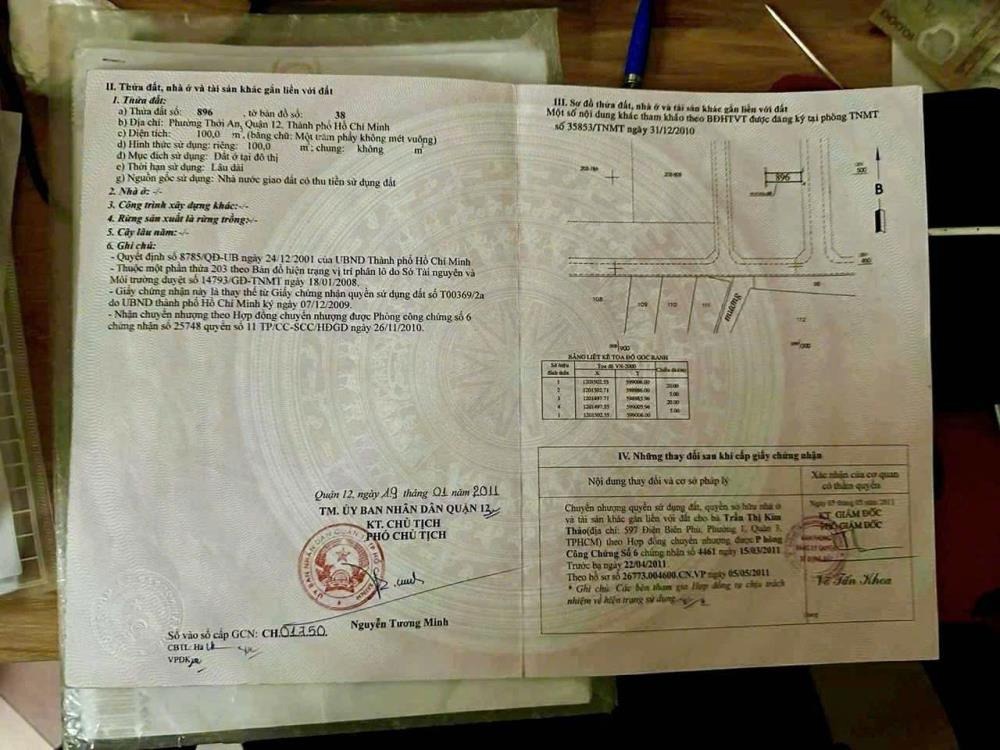 II. Thửa đất, nhà ở và tài sản khác gắn liền với đất
1. Thửa đất:
a) Thửa đất số: 896 , tờ bản đồ số: 38
b) Địa chỉ: Phường Thới An, Quận 12, Thành phố Hồ Chí Minh
c) Diện tích: 100,0 m², (bằng chữ: Một trăm phẩy không mét vuông)
d) Hình thức sử dụng: riêng: 100,0 m²; chung: không m²
đ) Mục đích sử dụng: Đất ở tại đô thị
e) Thời hạn sử dụng: Lâu dài
g) Nguồn gốc sử dụng: Nhà nước giao đất có thu tiền sử dụng đất
2. Nhà ở: -/-
3. Công trình xây dựng khác:-/-
4. Rừng sản xuất là rừng trồng:-/-
5. Cây lâu năm: -/-
6. Ghi chú:
- Quyết định số 8785/QĐ-UB ngày 24/12/2001 của UBND Thành phố Hồ Chí Minh
- Thuộc một phần thửa 203 theo Bản đồ hiện trạng vị trí phân lô do Sở Tài nguyên và
Môi trường duyệt số 14793/GĐ-TNMT ngày 18/01/2008.
- Giấy chứng nhận này là thay thế từ Giấy chứng nhận quyền sử dụng đất số T00369/2a
do UBND thành phố Hồ Chí Minh ký ngày 07/12/2009.
- Nhận chuyển nhượng theo Hợp đồng chuyển nhượng được Phòng công chứng số 6
chứng nhận số 25748 quyển số 11 TP/CC-SCC/HĐGD ngày 26/11/2010.
Quận 12, ngày 19 tháng 01 năm 2011
TM. ỦY BAN NHÂN DÂN QUẬN 12
KT. CHỦ TỊCH
PHÓ CHỦ TỊCH
Nguyễn Tương Minh
Số vào sổ cấp GCN: CH.01750
CBTL: Hà
VPĐK
III. Sơ đồ thửa đất, nhà ở và tài sản khác gắn liền với đất
Một số nội dung khác tham khảo theo BĐHTVT được đăng ký tại phòng TNMT
số 35853/TNMT ngày 31/12/2010
896
B
500
400
108
109
110
111
mương
98
112
900
000
BẢNG LIỆT KÊ TỌA ĐỘ GÓC RANH
Số hiệu đỉnh thửa Tọa độ VN-2000 Chiều dài
X Y
1 1201502.55 599006.00
20.00
2 1201502.71 598986.00
5.00
3 1201497.71 598985.96
20.00
4 1201497.55 599005.96
5.00
1 1201502.55 599006.00
IV. Những thay đổi sau khi cấp giấy chứng nhận
Nội dung thay đổi và cơ sở pháp lý
Xác nhận của cơ quan
có thẩm quyền
Chuyển nhượng quyền sử dụng đất, quyền sở hữu nhà ở
và tài sản khác gắn liền với đất cho bà Trần Thị Kim
Thảo(địa chỉ: 597 Điện Biên Phủ, Phường 1, Quận 3,
TPHCM) theo Hợp đồng chuyển nhượng được Phòng
Công Chứng Số 6 chứng nhận số 4461 ngày 15/03/2011
Trước bạ ngày 22/04/2011.
Theo hồ sơ số 26773.004600.CN.VP ngày 05/05/2011
* Ghi chú: Các bên tham gia Hợp đồng tự chịu trách
nhiệm về hiện trạng sử dụng.
Ngày 05 tháng 05 năm 2011
KT GIÁM ĐỐC
PHÓ GIÁM ĐỐC
Võ Tấn Khoa